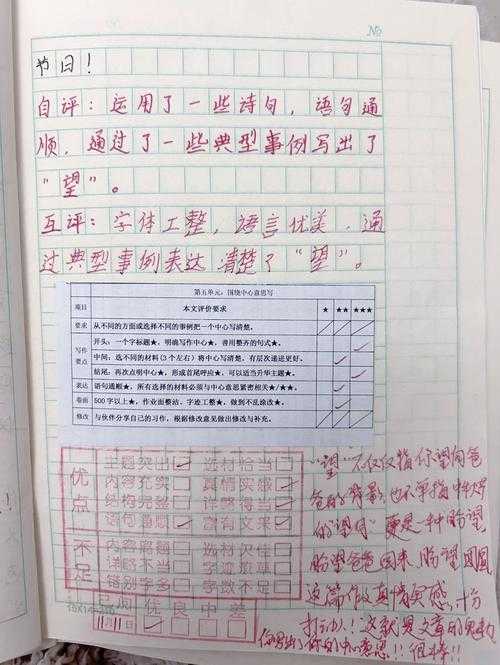 No
节日！
自评：运用了一些诗句，语句通
顺，通过了一些典型事例写出了
“望”。
互评：字体工整，语言优美，通
过典型事例表达清楚了“望”。
第五单元：围绕中心意思写
项目 本文评价要求 ★ ★★ ★★★
要求 从不同的方面或选择不同的事例把一个中心写清楚。
写作要点 开头：一个字标题★，明确写作中心★，善用整齐的句式★。
中间：选不同的材料(3个左右)将中心写清楚，有层次递进更好。
结尾：再次点明中心★，形成首尾呼应★，可以适当升华主题★。
表达 语句通顺★，所有选择的材料必须与中心意思紧密相关★/★★。
卷面 500字以上★，作业面整洁，字迹工整★，做到不乱涂改★。
修改 与伙伴分享自己的习作，根据修改意见做出修改与补充。
优点 主题突出 选材恰当
内容充实 真情实感
结构完整 详略得当
语句通顺 富有文采
不足 内容离题 选材欠佳
详略不当 字迹潦草
错别字多 字数不足
11月11日 优 良 中 差
“望”不仅仅指你望向爸
爸的背影，也不单指中秋
的“望月”更是一种盼望
盼望爸爸回来，盼望团圆
这篇作文真情实感，十分
打动人！这就是文章的魅力
你写出了你的中心意思！！很棒！！